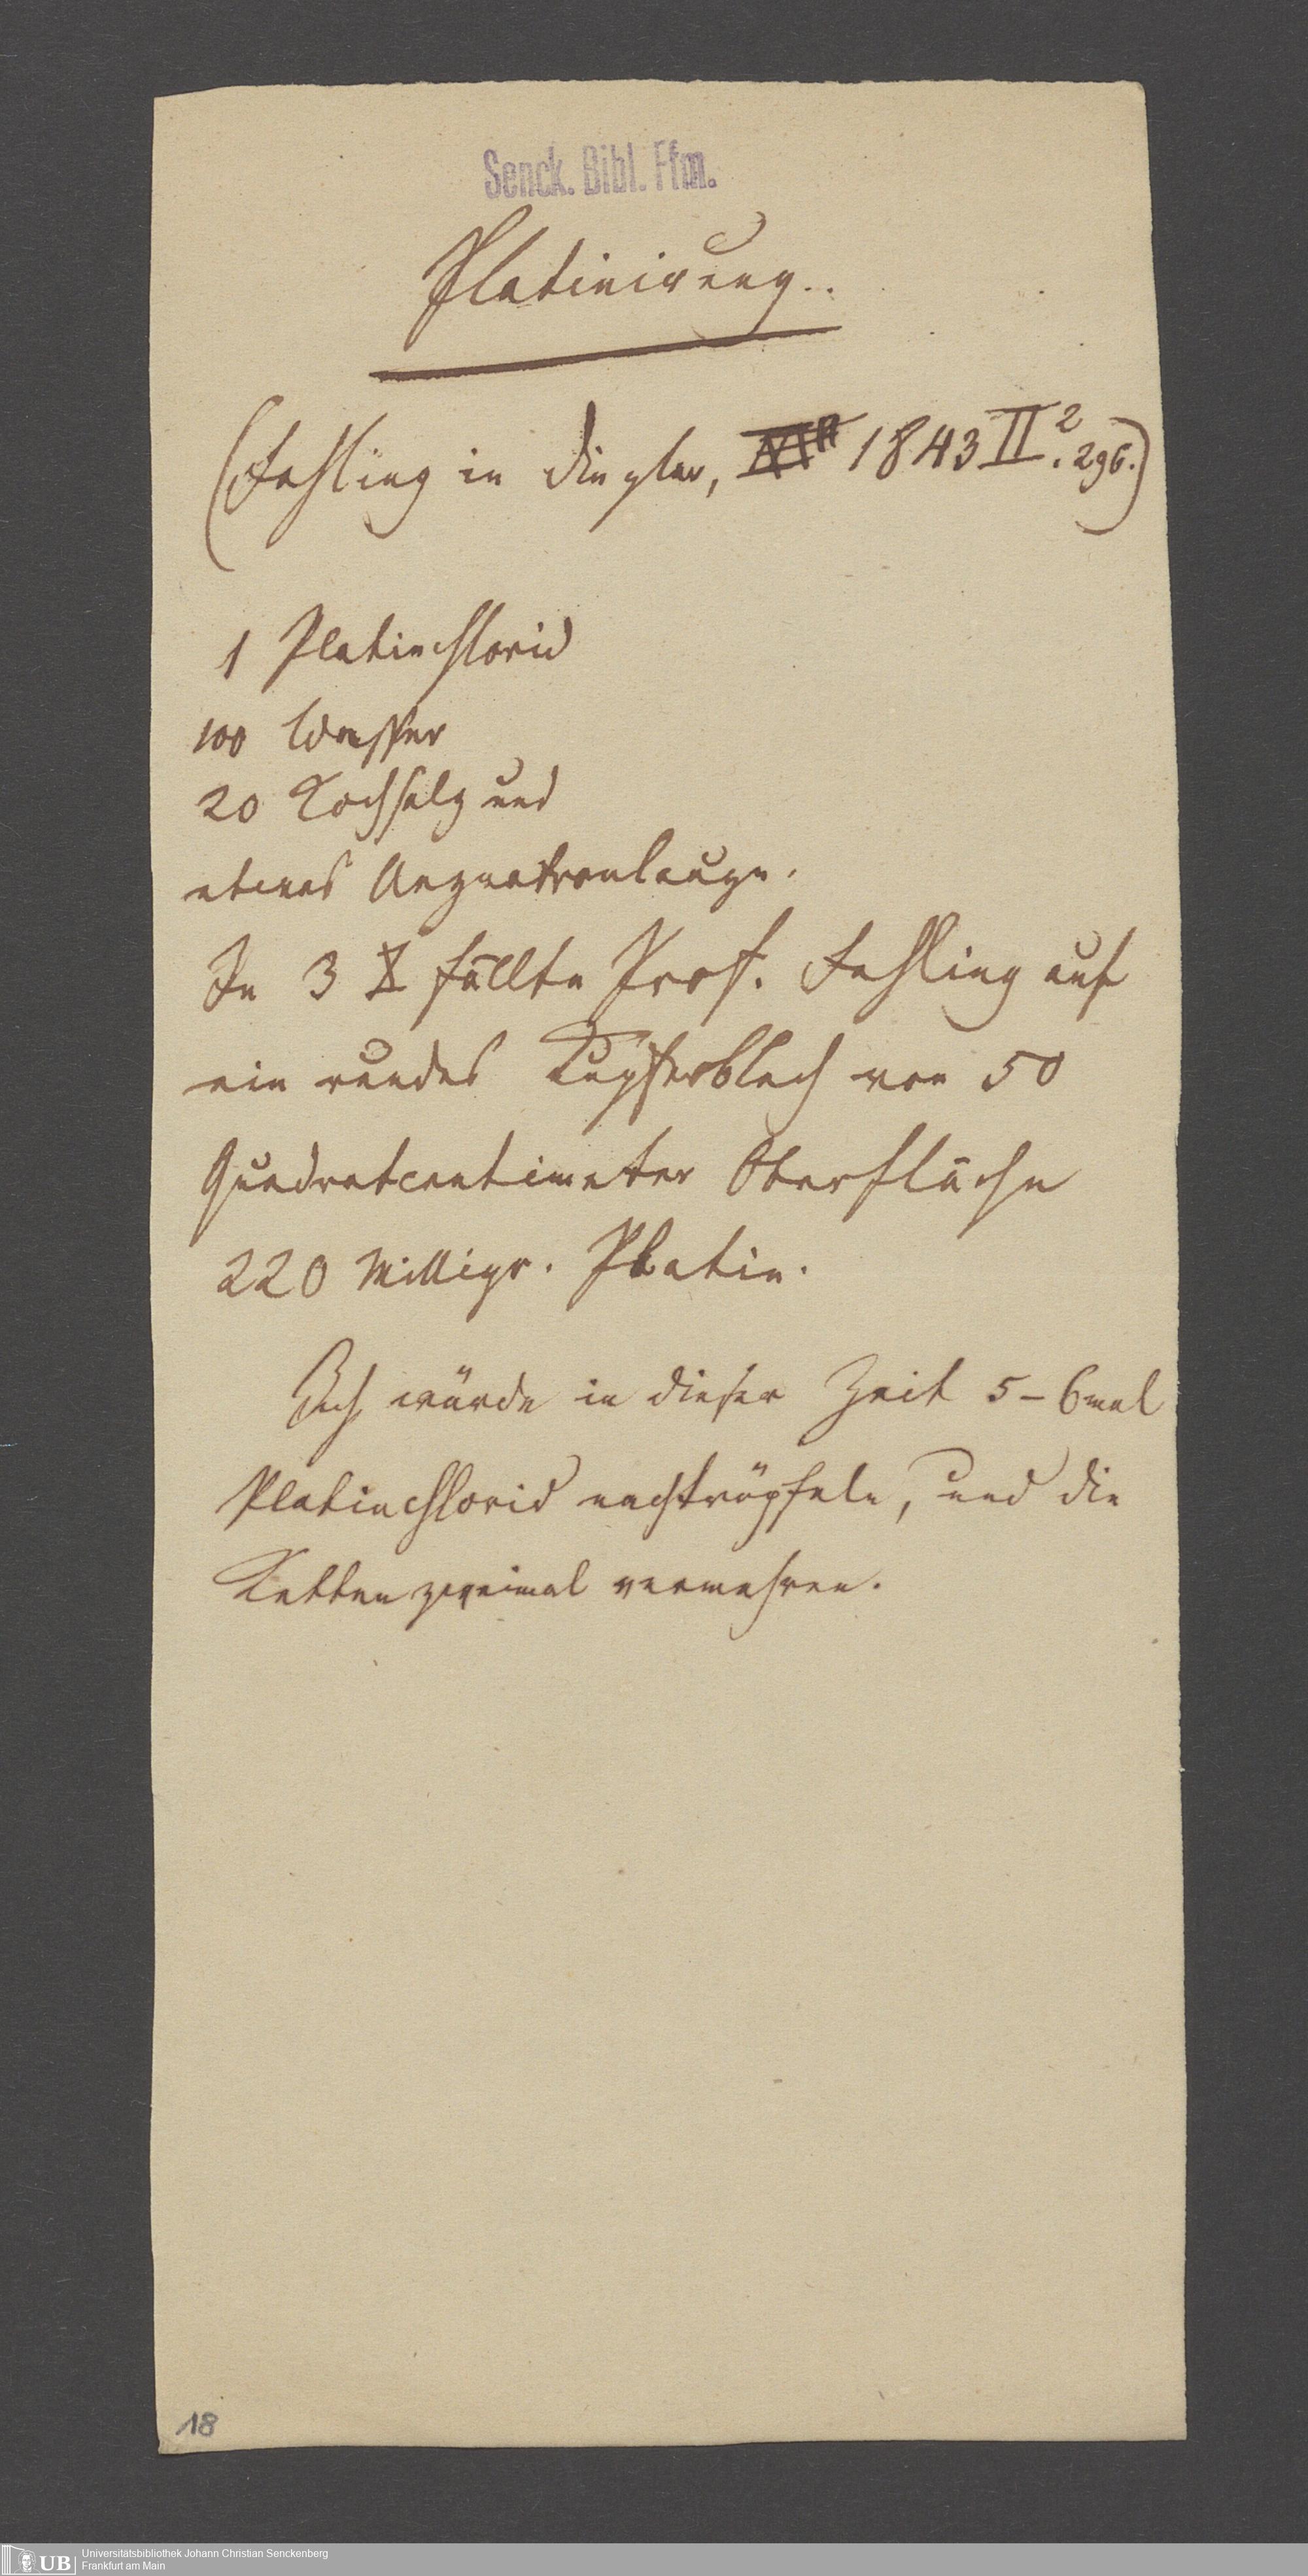 Senck. Bibl. Ffm.
Platinirung..
(Fehling in Dingler, 1843 II². 296.)
1 Platinchlorid
100 Wasser
20 Kochsalz und
etwas Aeznatronlauge.
In 3 fällte Prof. Fehling auf
ein rundes Kupferblech von 50
Quadratcentimeter Oberfläche
220 Milligr. Platin.
Ich würde in dieser Zeit 5-6mal
Platinchlorid nachtröpfeln, und die
Ketten zweimal vermehren.
18
UB Universitätsbibliothek Johann Christian Senckenberg
Frankfurt am Main